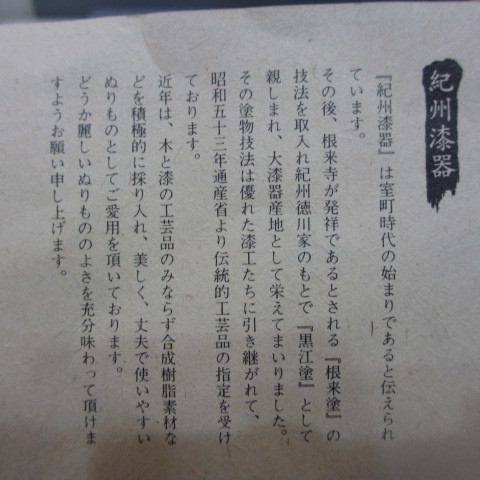 紀州漆器
『紀州漆器』は室町時代の始まりであると伝えられ
ています。
その後、根来寺が発祥であるとされる『根来塗』の
技法を取入れ紀州徳川家のもとで『黒江塗』として
親しまれ、大漆器産地として栄えてまいりました。
その塗物技法は優れた漆工たちに引き継がれて、
昭和五十三年通産省より伝統的工芸品の指定を受け
ております。
近年は、木と漆の工芸品のみならず合成樹脂素材な
どを積極的に採り入れ、美しく、丈夫で使いやすい
ぬりものとしてご愛用を頂いております。
どうか麗しいぬりもののよさを充分味わって頂けま
すようお願い申し上げます。